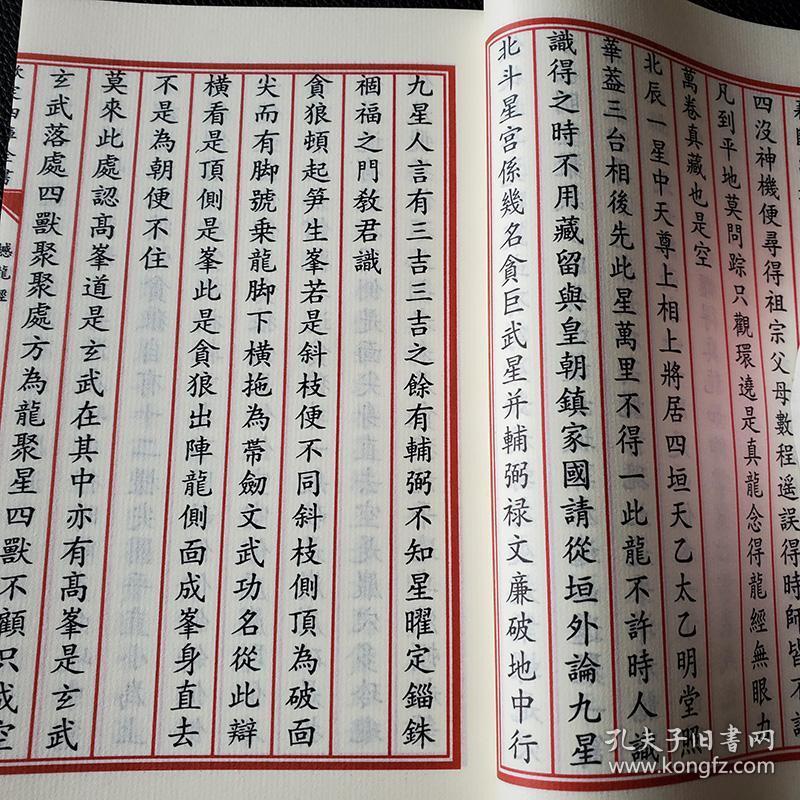 四沒神機便尋得祖宗父母數程遥誤得時師皆不
凡到平地莫問踪只觀環遶是真龍念得龍經無眼力
萬卷真藏也是空
北辰一星中天尊上相上將居四垣天乙太乙明堂照
華葢三台相後先此星萬里不得一此龍不許時人識
識得之時不用藏留與皇朝鎮家國請從垣外論九星
北斗星宫係幾名貪巨武星并輔弼禄文廉破地中行
九星人言有三吉三吉之餘有輔弼不知星曜定錙銖
禍福之門教君識
貪狼頓起笋生峯若是斜枝便不同斜枝側頂為破面
尖而有脚號乗龍脚下横拖為帶劒文武功名從此辯
横看是頂側是峯此是貪狼出陣龍側面成峯身直去
不是為朝便不住
莫來此處認髙峯道是玄武在其中亦有髙峯是玄武
玄武落處四獸聚聚處方為龍聚星四獸不顧只成空
欽定四庫全書
撼龍經
孔夫子旧書网
www.kongfz.com